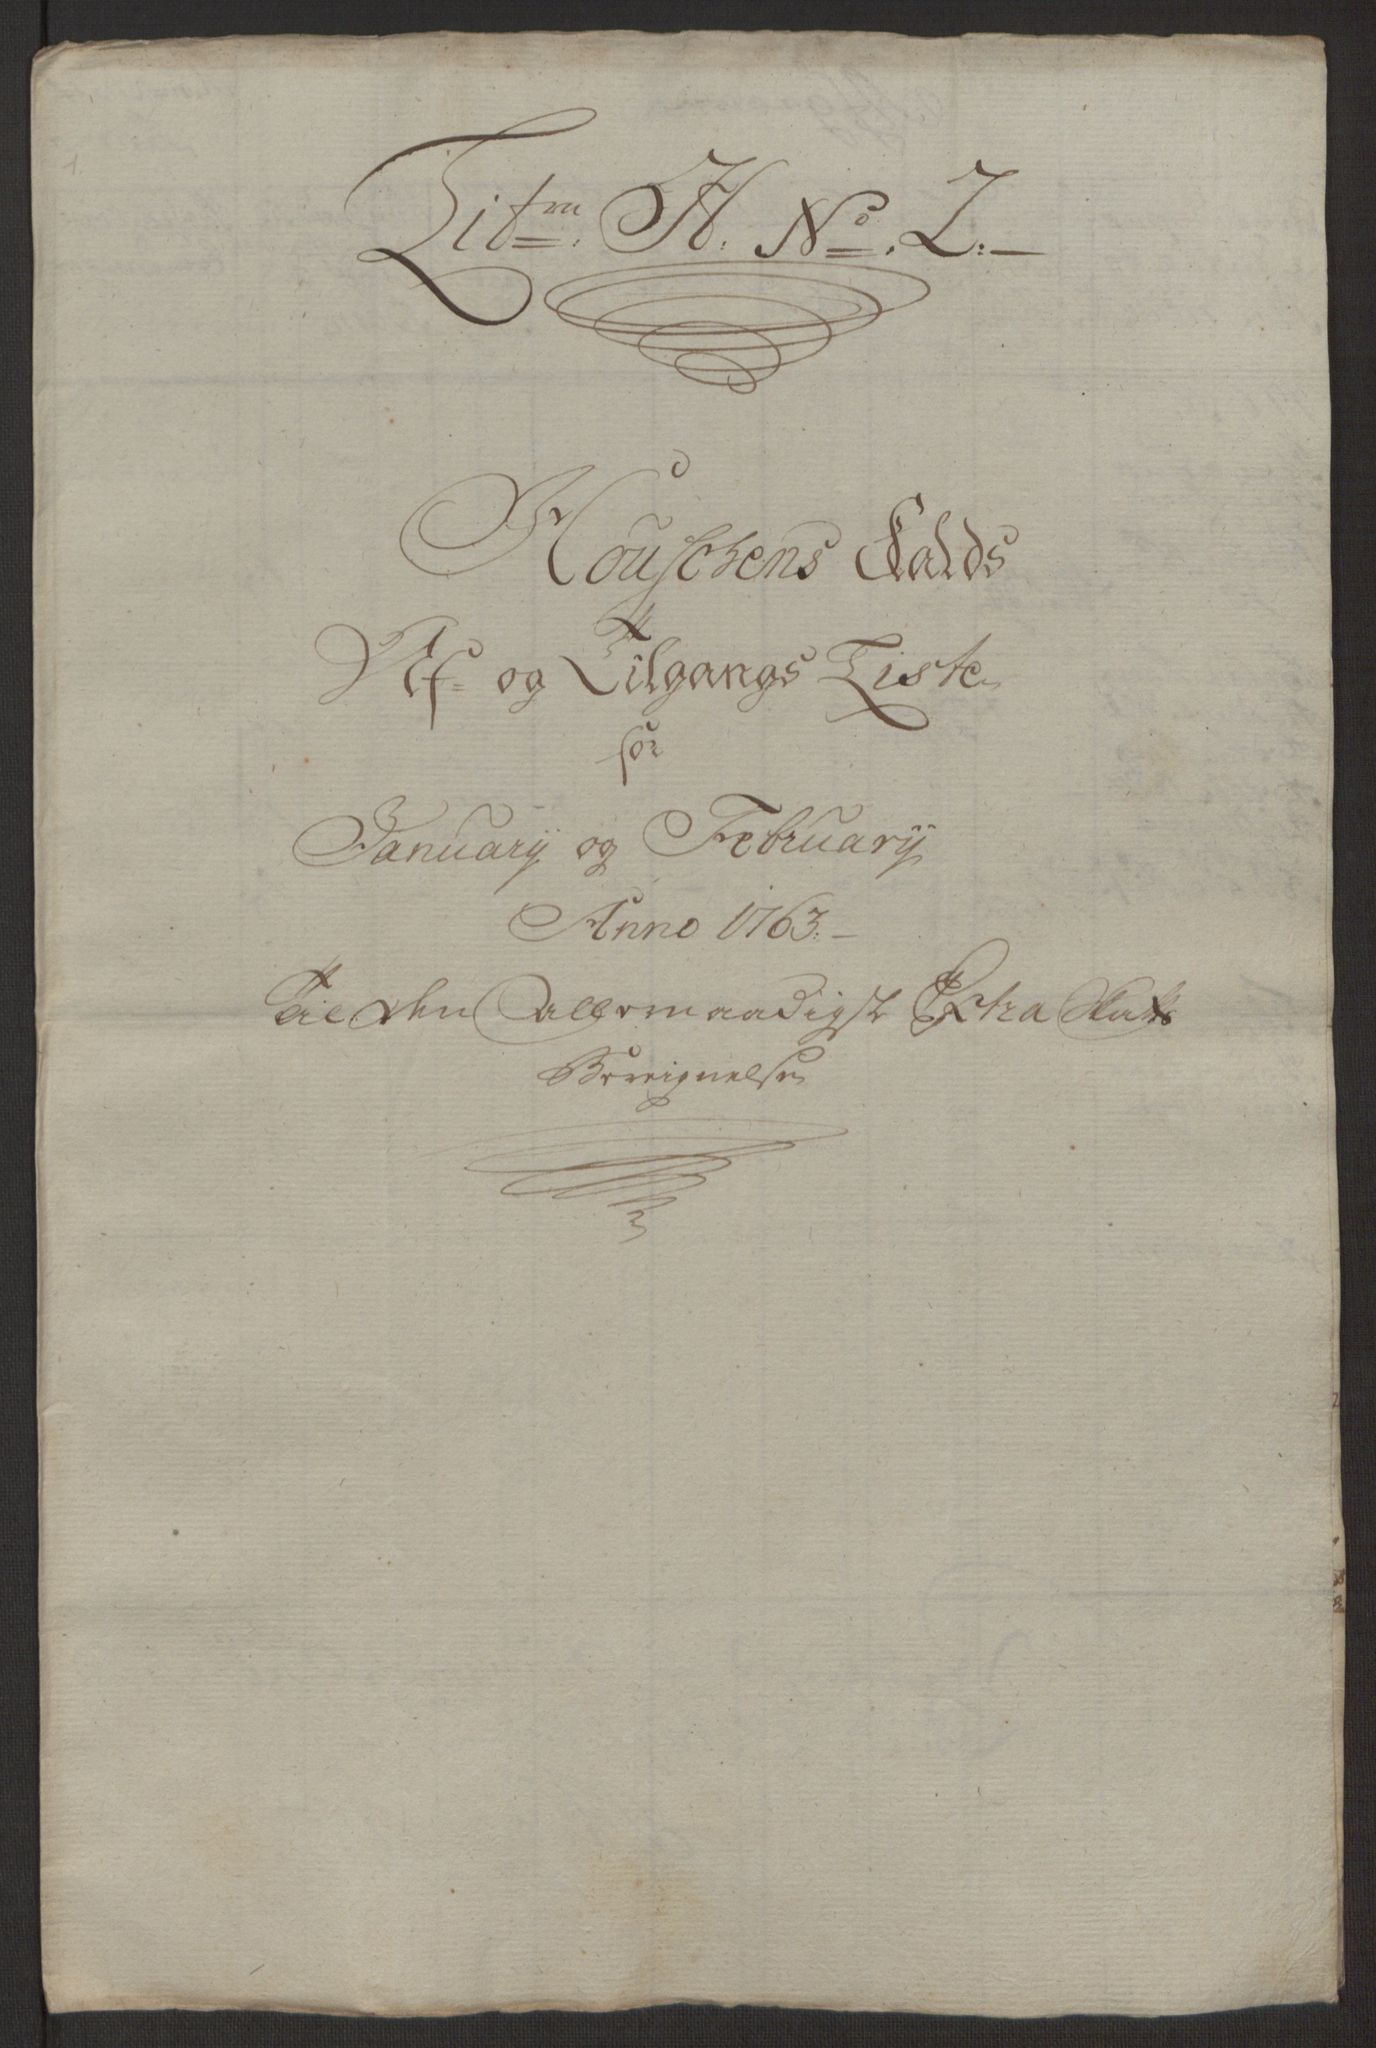 Litra. H. No. 2:
Kouschens Kalds
Af- og Tilgangs Liste
for
Januarÿ og Februarÿ
Anno 1763.
Til den Allernaadigst Extra Skatts
Beregnelse